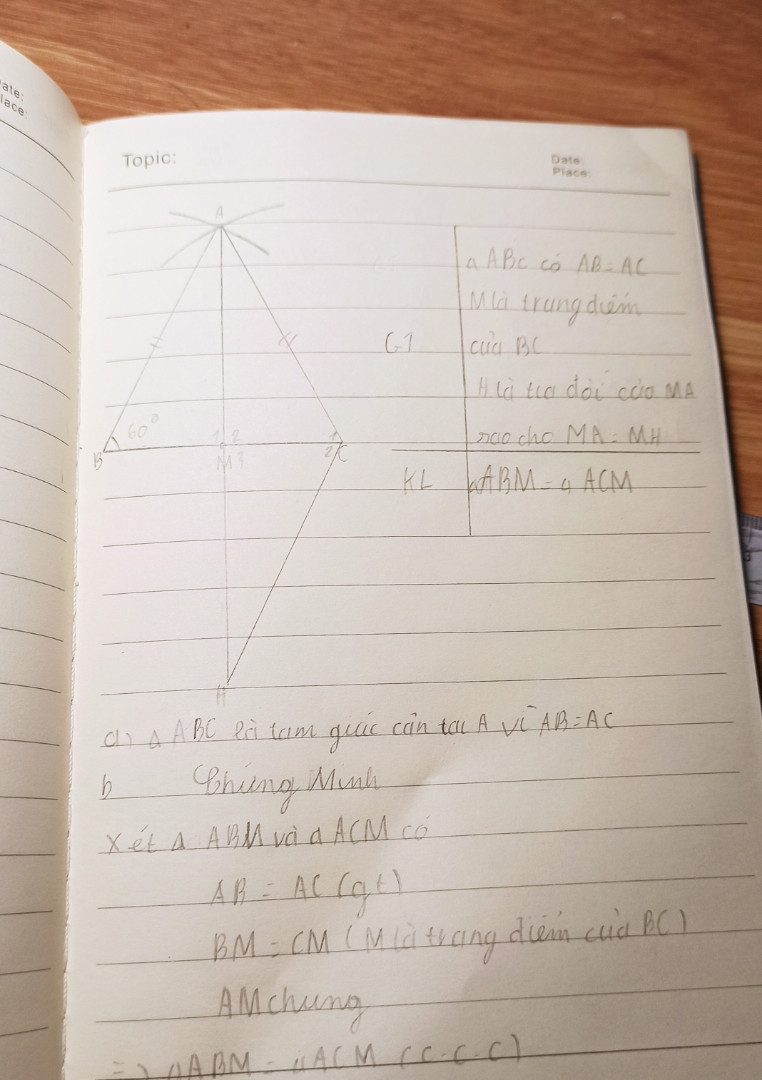 ate:
lace:
Topic:
Date:
Place:
A
B
60°
1 2
M 3
1
2 C
H
GT
Δ ABC có AB = AC
M là trung điểm
của BC
H là tia đối của MA
sao cho MA = MH
KL
Δ ABM = Δ ACM
a) Δ ABC là tam giác cân tại A vì AB = AC
b Chứng Minh
Xét Δ ABM và Δ ACM có
AB = AC (gt)
BM = CM (M là trung điểm của BC)
AM chung
=) Δ ABM = Δ ACM (c.c.c)